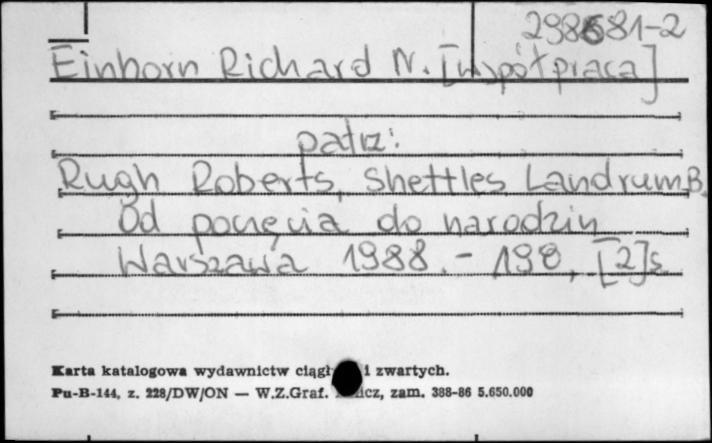 298681-2
Einhorn Richard N. [współpraca]
patrz:
Rugh Roberts, Shettles Landrum B.
Od poczęcia do narodzin
Warszawa 1988. - 198, [2] s.
Karta katalogowa wydawnictw i zwartych.
Pu-B-144, z. 228/DW/ON — W.Z.Graf. zam. 388-86 5.650.000